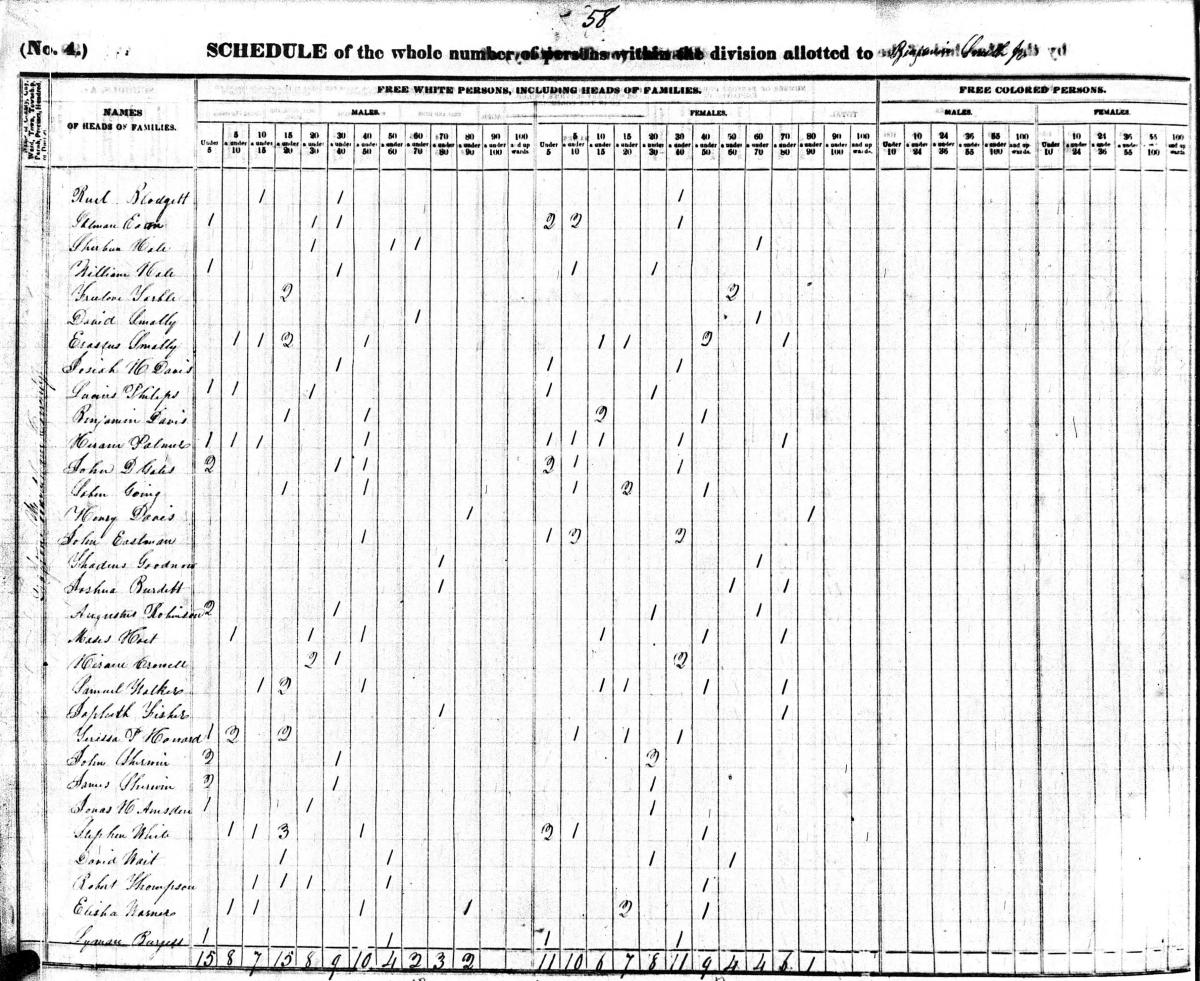 58
(No. 4.) SCHEDULE of the whole number of persons within the division allotted to Benjamin Smith Jr
NAMES OF HEADS OF FAMILIES.
FREE WHITE PERSONS, INCLUDING HEADS OF FAMILIES.
FREE COLORED PERSONS.
MALES. FEMALES. MALES. FEMALES.
Under 5 5 & under 10 10 & under 15 15 & under 20 20 & under 30 30 & under 40 40 & under 50 50 & under 60 60 & under 70 70 & under 80 80 & under 90 90 & under 100 100 and up wards
Under 5 5 & under 10 10 & under 15 15 & under 20 20 & under 30 30 & under 40 40 & under 50 50 & under 60 60 & under 70 70 & under 80 80 & under 90 90 & under 100 100 and up wards
Under 10 10 & under 24 24 & under 36 36 & under 55 55 & under 100 100 and up wards
Under 10 10 & under 24 24 & under 36 36 & under 55 55 & under 100 100 and up wards
Blodgett 1 1 1
1 1 1 2 2 1
Hale 1 1 1 1
William Hale 1 1 1 1
2 2
David Smally 1 1
Erastus Smally 1 1 2 1 1 1 2 1
Josiah H Davis 1 1 1
Philips 1 1 1 1 1
Benjamin Davis 1 1 2 1
Hiram Palmer 1 1 1 1 1 1 1 1 1
John D Gates 2 1 1 2 1 1
John Going 1 1 1 2 1
Henry Davis 1 1
John Eastman 1 1 2 2
Thadeus Goodnow 1 1
Joshua Burdett 1 1 1
Augustus Robinson 2 1 1 1
Moses Hoit 1 1 1 1 1 1
Hiram Crowell 2 1 2
Samuel Walker 1 2 1 1 1 1 1
Japheth Fisher 1 1
Howard 1 2 2 1 1 1
John Sherwin 2 1 2
James Sherwin 2 1 1
Jonas H Amsden 1 1 1
Stephen White 1 1 3 1 2 1 1
David Wait 1 1 1 1
Robert Thompson 1 1 1 1 1
Elisha Warner 1 1 1 1 2 1
Lyman Burgess 1 1 1 1
15 8 7 15 8 9 10 4 2 3 2 11 10 6 7 8 11 9 4 4 6 1